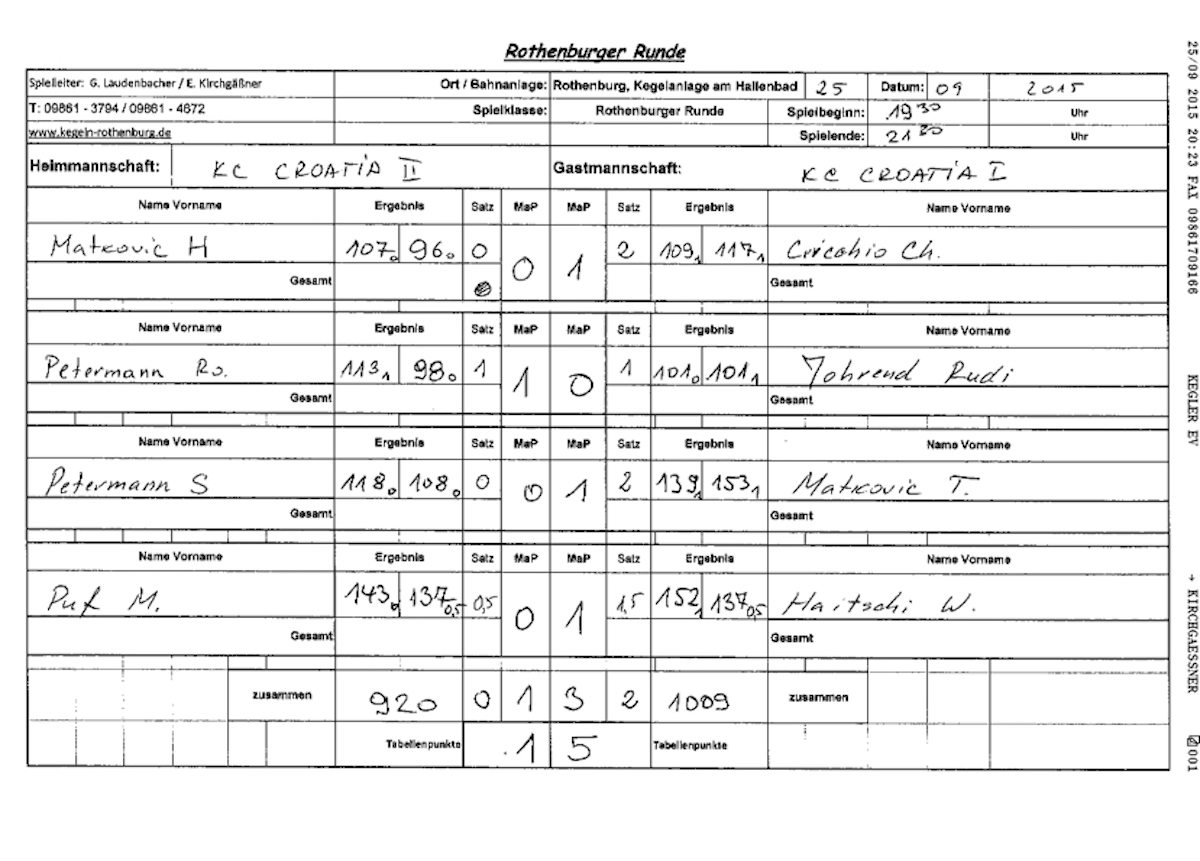 Rothenburger Runde
Spielleiter: G. Laudenbacher / E. Kirchgäßner Ort / Bahnanlage: Rothenburg, Kegelanlage am Hallenbad 25 Datum: 09 2015
T: 09861 - 3794 / 09861 - 4672 Spielklasse: Rothenburger Runde Spielbeginn: 19 30 Uhr
www.kegeln-rothenburg.de Spielende: 21 20 Uhr
Heimmannschaft: KC CROATIA II Gastmannschaft: KC CROATIA I
Name Vorname Ergebnis Satz MaP MaP Satz Ergebnis Name Vorname
Matkovic H 107 0 96 0 0 0 1 2 109 1 117 1 Ch.
Gesamt Gesamt
Name Vorname Ergebnis Satz MaP MaP Satz Ergebnis Name Vorname
Petermann Ro. 113 1 98 0 1 1 0 1 101 0 101 1 Rudi
Gesamt Gesamt
Name Vorname Ergebnis Satz MaP MaP Satz Ergebnis Name Vorname
Petermann S 118 0 108 0 0 0 1 2 139 1 153 1 Matkovic T.
Gesamt Gesamt
Name Vorname Ergebnis Satz MaP MaP Satz Ergebnis Name Vorname
Puf M. 143 0 137 0,5 0,5 0 1 1,5 152 1 137 0,5 Haitschi W.
Gesamt Gesamt
zusammen 920 0 1 3 2 1009 zusammen
Tabellenpunkte 1 5 Tabellenpunkte
25/09 2015 20:23 FAX 09861709166 KEGLER EV → KIRCHGAESSNER 001